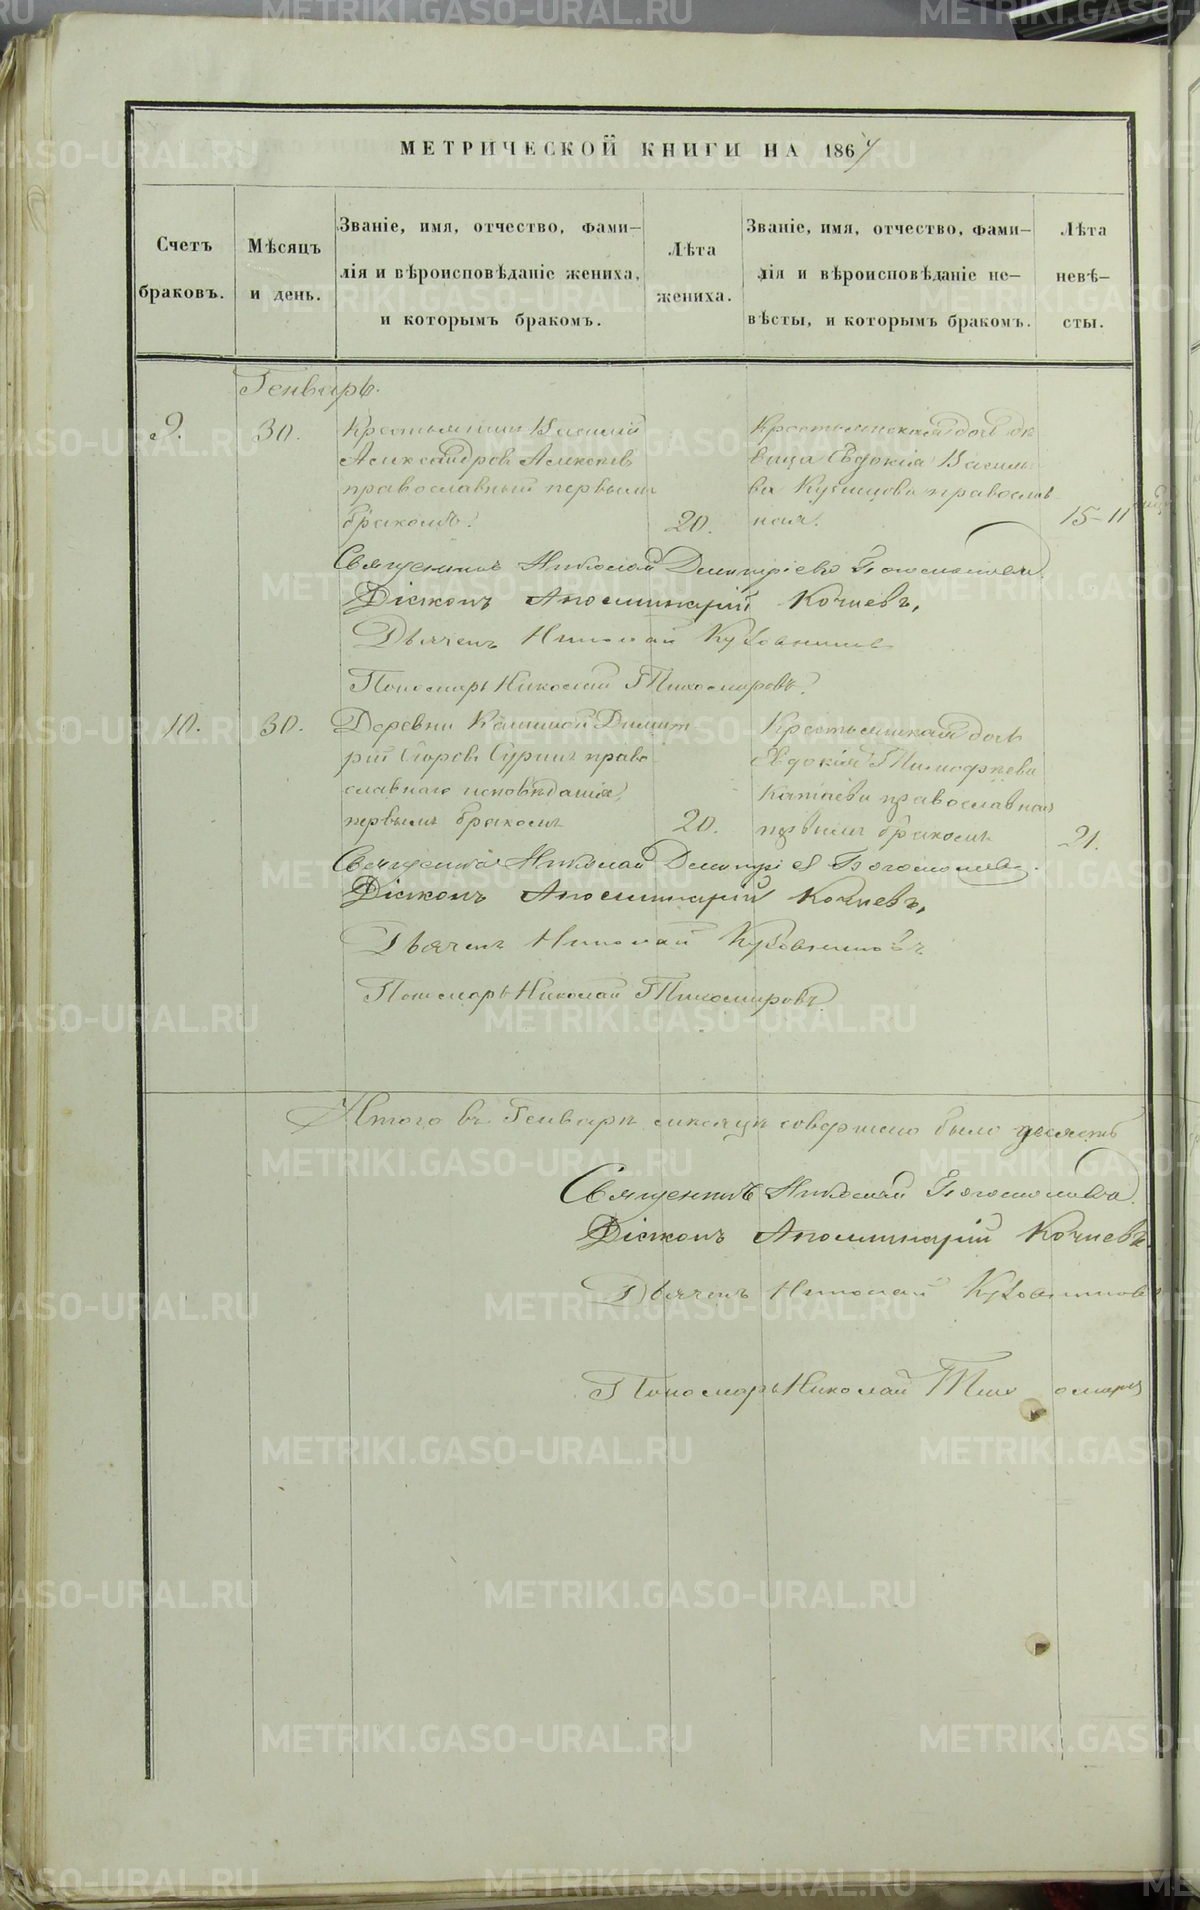 МЕТРИЧЕСКОЙ КНИГИ НА 1867
Счетъ браковъ.
Мѣсяцъ и день.
Званіе, имя, отчество, фами-
лія и вѣроисповѣданіе жениха,
и которымъ бракомъ.
Лѣта жениха.
Званіе, имя, отчество, фами-
лія и вѣроисповѣданіе не-
вѣсты, и которымъ бракомъ.
Лѣта невѣ-
сты.
Генварь.
9. 30.
Крестьянинъ Василій
Александровъ Алексѣевъ
православный первымъ
бракомъ.
20.
Крестьянская дочь дѣ
вица Євдокія Василье
ва Кузнецова православ
ная.
15-11
Священникъ Николай Димитріевъ Богомоловъ.
Діаконъ Аполлинарій Кочневъ,
Дьячекъ Николай
Пономарь Николай Тихомировъ.
10. 30.
Деревни Димит
рій Егоровъ Суринъ право
славнаго исповѣданія,
первымъ бракомъ
20.
Крестьянская дочь
Євдокія Тимофѣева
Катаева православная
первымъ бракомъ
21.
Священникъ Николай Димитріев Богомоловъ.
Діаконъ Аполлинарій Кочневъ,
Дьячекъ Николай
Пономарь Николай Тихомировъ.
Итого въ Генварѣ мѣсяцѣ совершено было десять
Священникъ Николай Богомоловъ.
Діаконъ Аполлинарій Кочневъ.
Дьячекъ Николай
Пономарь Николай Тихомиров
METRIKI.GASO-URAL.RU